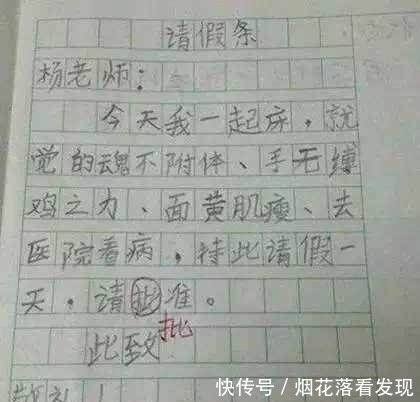 请假条
杨老师：
今天我一起床，就
觉的魂不附体、手无缚
鸡之力、面黄肌瘦、去
医院看病，特此请假一
天，请批准。
批
此致
敬礼！
快传号/烟花落看发现